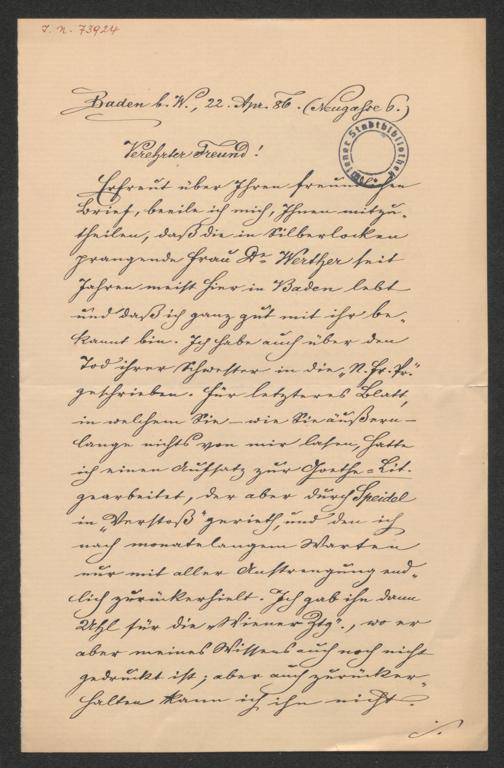 J. N. 73924
Baden b. W., 22. Apr. 86. (Neugasse 6.)
Wiener Stadtbibliothek
Verehrter Freund!
Erfreut über Ihren freundlichen
Brief, beeile ich mich, Ihnen mitzu-
theilen, daß die in Silberlocken
prangende Frau Dr. Werther seit
Jahren meist hier in Baden lebt
und daß ich ganz gut mit ihr be-
kannt bin. Ich habe auch über den
Tod ihrer Schwester in die „N. Fr. Pr."
geschrieben. Für letzteres Blatt,
in welchem Sie – wie Sie äußern –
lange nichts von mir lasen, hatte
ich einen Aufsatz zur Goethe=Lit.
gearbeitet, der aber durch Speidel
in „Verstoß" gerieth, und den ich
nach monatelangem Warten
nur mit aller Anstrengung end-
lich zurückerhielt. Ich gab ihn dann
Uhl für die „Wiener Ztg"., wo er
aber meines Wissens auch noch nicht
gedruckt ist; aber auch zurücker-
halten kann ich ihn nicht.